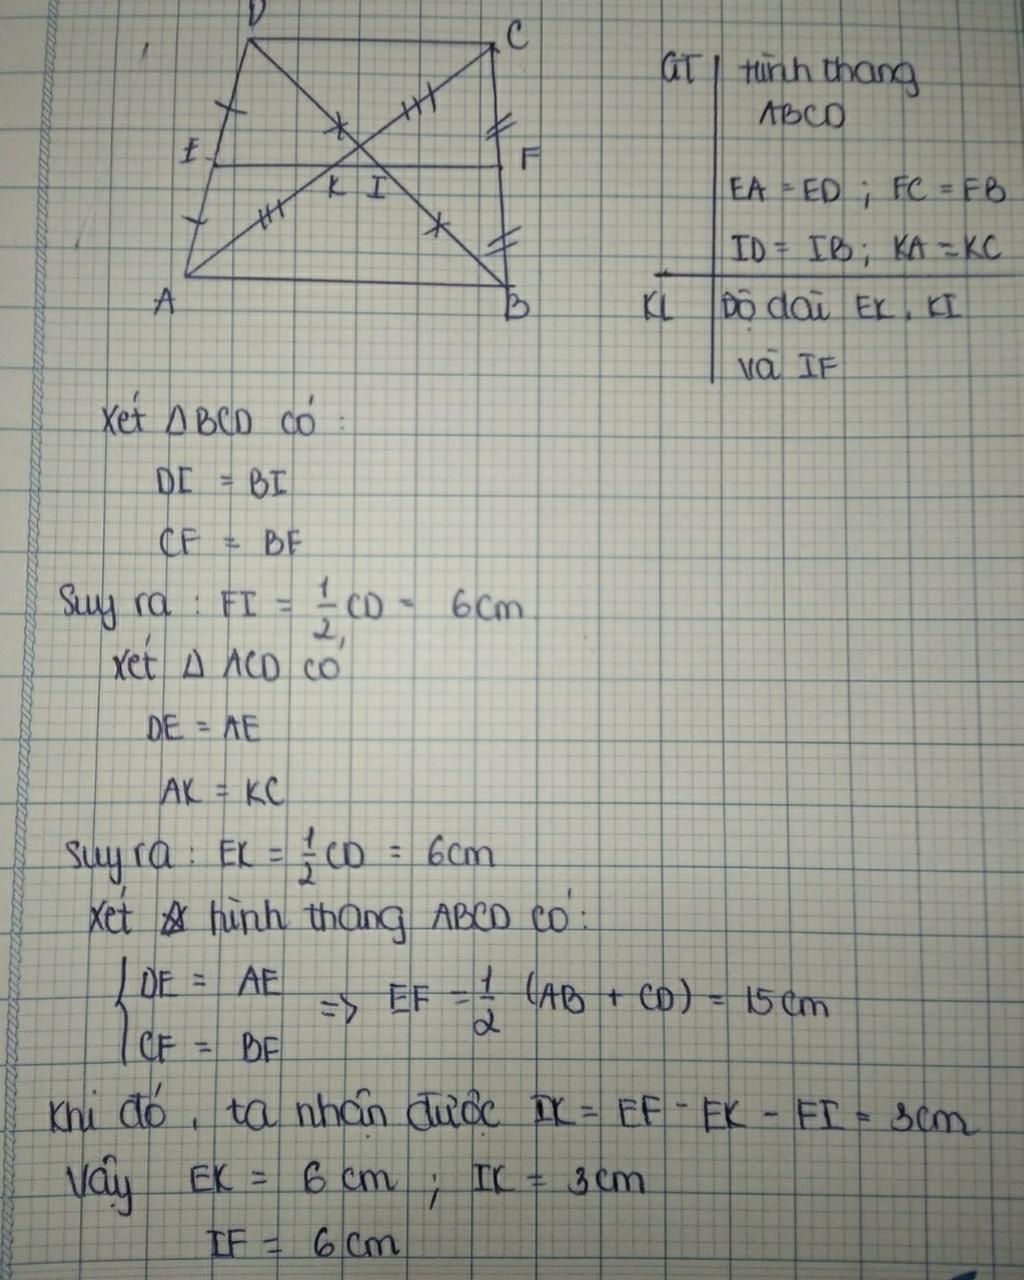 D
C
E
F
K I
A
B
GT hình thang
ABCD
EA = ED ; FC = FB
ID = IB ; KA = KC
KL Độ dài EK, KI
và IF
Xét ΔBCD có :
DI = BI
CF = BF
Suy ra : FI = 1/2 CD = 6cm
Xét Δ ACD có
DE = AE
AK = KC
Suy ra : EK = 1/2 CD = 6cm
Xét hình thang ABCD có :
{ DE = AE
CF = BF => EF = 1/2 (AB + CD) = 15cm
Khi đó , ta nhận được IK = EF - EK - FI = 3cm
Vậy EK = 6 cm ; IK = 3cm
IF = 6cm